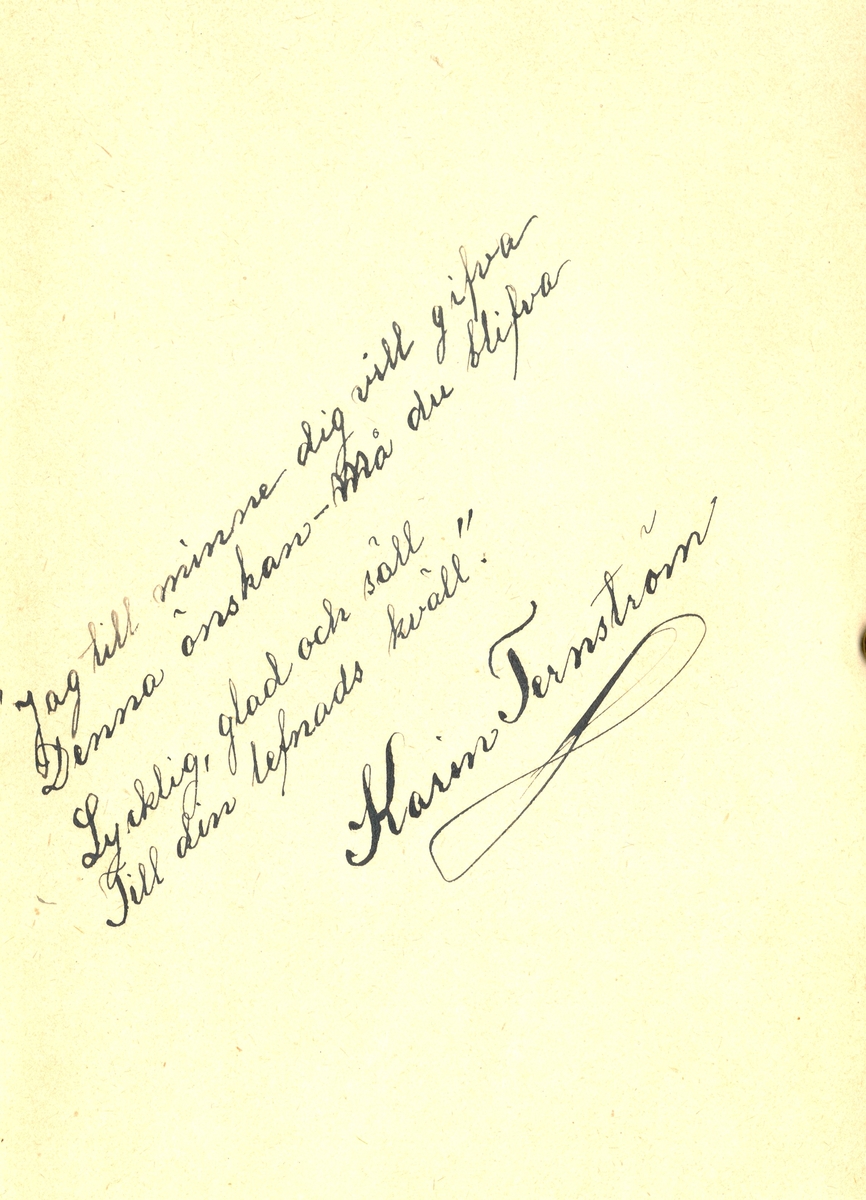 "Jag till minne dig vill gifva
Denna önskan – Må du blifva
Lycklig, glad och säll
Till din lefnads kväll."
Karin Ternström